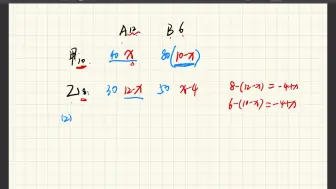 A12 B 6
甲10 40 x 80(10-x)
乙8 30 12-x 50 x-4
8-(12-x)=-4+x
6-(10-x)=-4+x
(2)